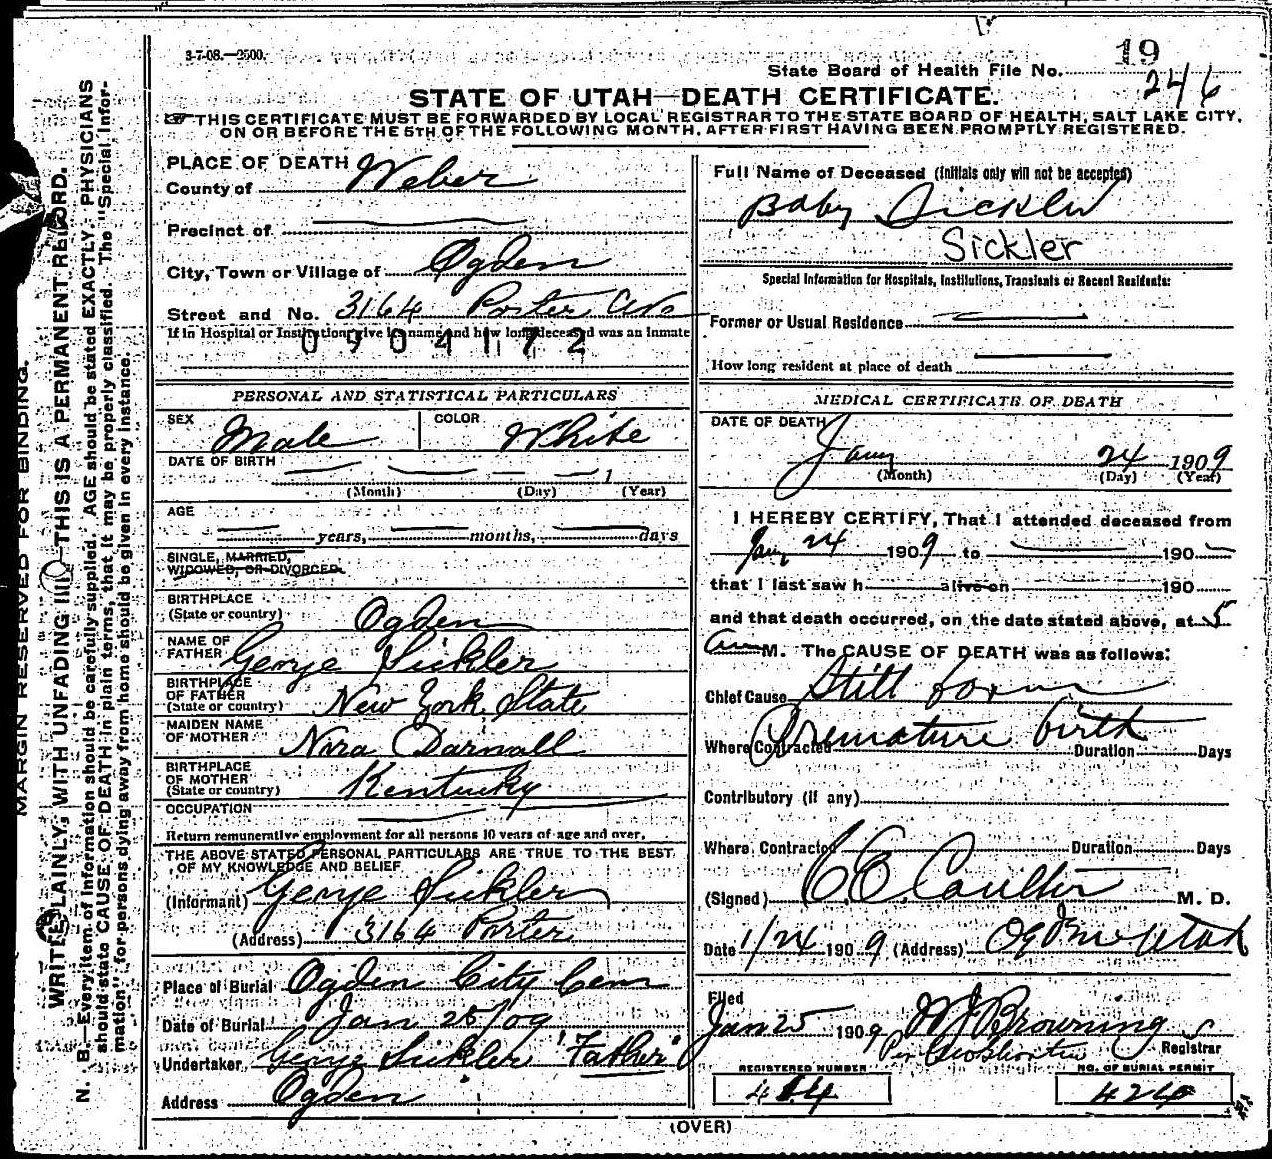 3-7-08.—2500.
19
State Board of Health File No. 246
STATE OF UTAH—DEATH CERTIFICATE.
THIS CERTIFICATE MUST BE FORWARDED BY LOCAL REGISTRAR TO THE STATE BOARD OF HEALTH, SALT LAKE CITY,
ON OR BEFORE THE 5TH OF THE FOLLOWING MONTH, AFTER FIRST HAVING BEEN PROMPTLY REGISTERED.
MARGIN RESERVED FOR BINDING.
WRITE PLAINLY, WITH UNFADING INK—THIS IS A PERMANENT RECORD.
N. B.—Every item of information should be carefully supplied. AGE should be stated EXACTLY. PHYSICIANS
should state CAUSE OF DEATH in plain terms, that it may be properly classified. The "Special Infor-
mation" for persons dying away from home should be given in every instance.
PLACE OF DEATH
County of Weber
Precinct of
City, Town or Village of Ogden
Street and No. 3164 Porter Ave
If in Hospital or Institution, give its name and how long deceased was an inmate
0904172
PERSONAL AND STATISTICAL PARTICULARS
SEX Male COLOR White
DATE OF BIRTH 1
(Month) (Day) (Year)
AGE
years, months, days
SINGLE, MARRIED,
WIDOWED, OR DIVORCED
BIRTHPLACE
(State or country) Ogden
NAME OF
FATHER George Sickler
BIRTHPLACE
OF FATHER
(State or country) New York State
MAIDEN NAME
OF MOTHER Nora Darnall
BIRTHPLACE
OF MOTHER
(State or country) Kentucky
OCCUPATION
Return remunerative employment for all persons 10 years of age and over.
THE ABOVE STATED PERSONAL PARTICULARS ARE TRUE TO THE BEST
OF MY KNOWLEDGE AND BELIEF
(Informant) George Sickler
(Address) 3164 Porter
Place of Burial Ogden City Cem
Date of Burial Jan 25/09
Undertaker George Sickler "Father"
Address Ogden
Full Name of Deceased (Initials only will not be accepted)
Baby Sickler
Sickler
Special Information for Hospitals, Institutions, Transients or Recent Residents:
Former or Usual Residence
How long resident at place of death
MEDICAL CERTIFICATE OF DEATH
DATE OF DEATH
Jany 24 1909
(Month) (Day) (Year)
I HEREBY CERTIFY, That I attended deceased from
Jany 24 1909 to 190
that I last saw h alive on 190
and that death occurred, on the date stated above, at 5
am M. The CAUSE OF DEATH was as follows:
Chief Cause Still born
Premature birth
Where Contracted Duration Days
Contributory (if any)
Where Contracted Duration Days
(Signed) C. E. Coulter M. D.
Date 1/24 1909 (Address) Ogden Utah
Filed
Jan 25 1909 W J Browning
Registrar
REGISTERED NUMBER
NO. OF BURIAL PERMIT
424
(OVER)